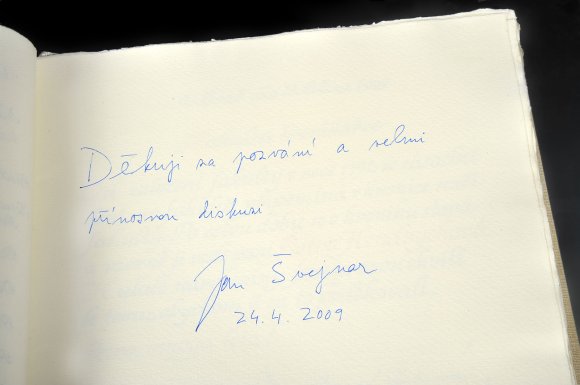 Děkuji za pozvání a velmi
přínosnou diskusi
Jan Švejnar
24.4.2009